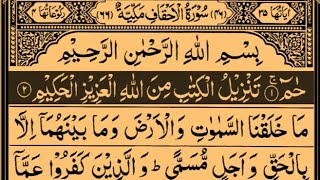 اٰیَاتُهَا ۳۵ (۴۶) سُوْرَةُ الْاَحْقَافِ مَكِّيَّةٌ (۶۶) رُكُوْعَاتُهَا ۴
بِسْمِ اللّٰهِ الرَّحْمٰنِ الرَّحِيْمِ
حٰمٓ ۚ ۱ تَنْزِيْلُ الْكِتٰبِ مِنَ اللّٰهِ الْعَزِيْزِ الْحَكِيْمِ ۲
مَا خَلَقْنَا السَّمٰوٰتِ وَالْاَرْضَ وَمَا بَيْنَهُمَاۤ اِلَّا
بِالْحَقِّ وَاَجَلٍ مُّسَمًّى ؕ وَالَّذِيْنَ كَفَرُوْا عَمَّاۤ